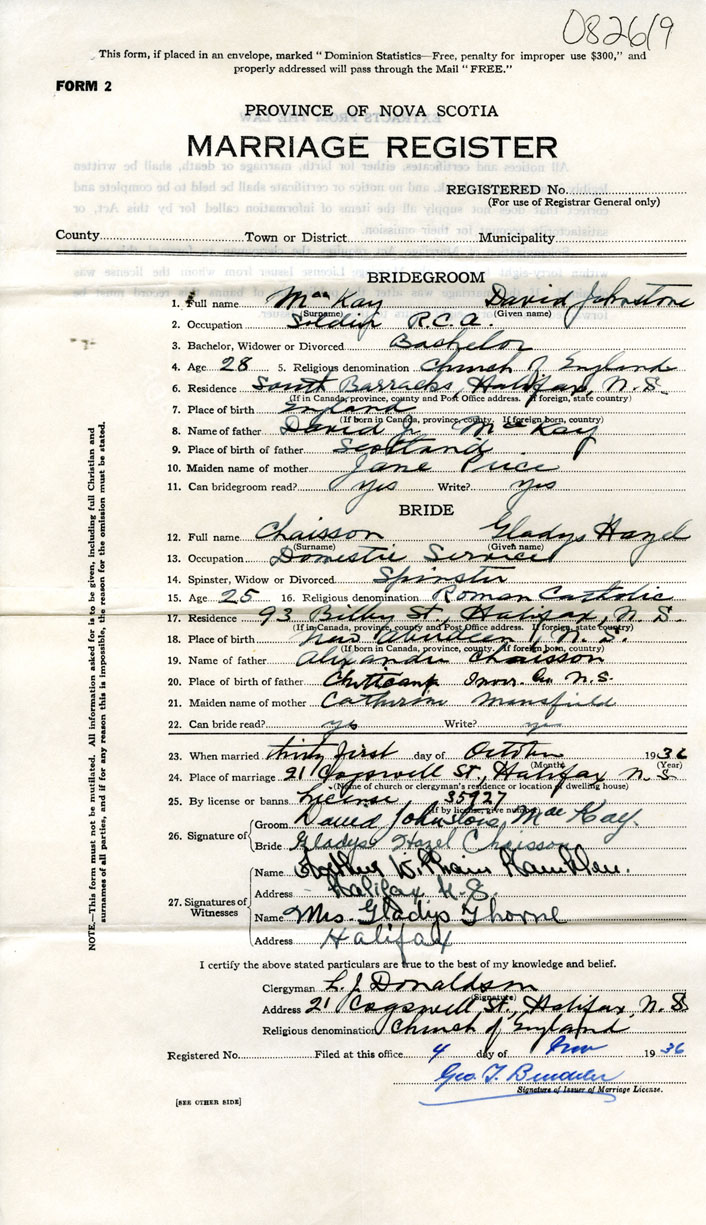 082619
This form, if placed in an envelope, marked "Dominion Statistics—Free, penalty for improper use $300," and
properly addressed will pass through the Mail "FREE."
FORM 2
PROVINCE OF NOVA SCOTIA
MARRIAGE REGISTER
REGISTERED No.
(For use of Registrar General only)
County Town or District Municipality
BRIDEGROOM
1. Full name MacKay David Johnstone
(Surname) (Given name)
2. Occupation Soldier R.C.A.
3. Bachelor, Widower or Divorced Bachelor
4. Age 28 5. Religious denomination Church of England
6. Residence South Barracks, Halifax, N.S.
(If in Canada, province, county and Post Office address. If foreign, state country)
7. Place of birth England
(If born in Canada, province, county. If foreign born, country)
8. Name of father David J. MacKay
9. Place of birth of father Scotland
10. Maiden name of mother Jane Price
11. Can bridegroom read? yes Write? yes
BRIDE
12. Full name Chaisson Gladys Hazel
(Surname) (Given name)
13. Occupation Domestic Service
14. Spinster, Widow or Divorced Spinster
15. Age 25 16. Religious denomination Roman Catholic
17. Residence 93 Bilby St., Halifax, N.S.
(If in Canada, province, county and Post Office address. If foreign, state country)
18. Place of birth New Aberdeen, N.S.
(If born in Canada, province, county. If foreign born, country)
19. Name of father Alexander Chaisson
20. Place of birth of father Chiticamp Inver. Co. N.S.
21. Maiden name of mother Catherine Mansfield
22. Can bride read? yes Write? yes
23. When married thirty first day of October 1936
(Month) (Year)
24. Place of marriage 21 Cogswell St., Halifax N.S.
(Name of church or clergyman's residence or location of dwelling house)
25. By license or banns License 35927
(If by license, give number)
26. Signature of Groom David Johnstone MacKay.
Bride Gladys Hazel Chaisson
27. Signatures of Witnesses
Name William
Address Halifax N.S.
Name Mrs. Gladys Thorne
Address Halifax
I certify the above stated particulars are true to the best of my knowledge and belief.
Clergyman L. J. Donaldson
(Signature)
Address 21 Cogswell St., Halifax, N.S
Religious denomination Church of England
Registered No. Filed at this office 4 day of Nov 1936
Geo. T.
Signature of Issuer of Marriage License.
[SEE OTHER SIDE]
NOTE.—This form must not be mutilated. All information asked for is to be given, including full Christian and
surnames of all parties, and if for any reason this is impossible, the reason for the omission must be stated.